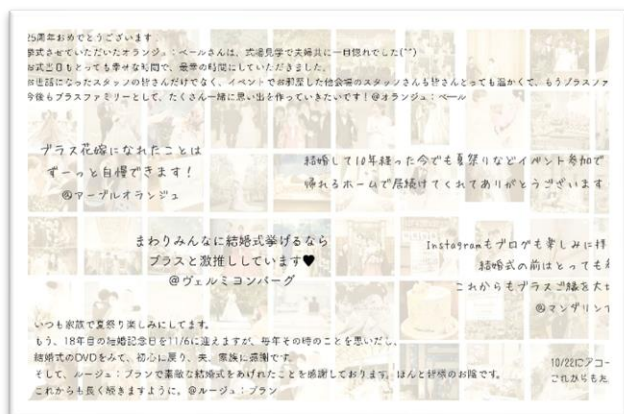 25周年おめでとうございます
挙式させていただいたオランジュ：ベールさんは、式場見学で夫婦共に一目惚れでした(^^)
お式当日もとっても幸せな時間で、最幸の時間にしていただきました。
お世話になったスタッフの皆さんだけでなく、イベントでお邪魔した他会場のスタッフさんも皆さんとっても温かくて、もうプラスファ
今後もプラスファミリーとして、たくさん一緒に思い出を作っていきたいです！@オランジュ：ベール
プラス花嫁になれたことは
ずーっと自慢できます！
@アーブルオランジュ
結婚して10年経った今でも夏祭りなどイベント参加で
帰れるホームで居続けてくれてありがとうございます
まわりみんなに結婚式挙げるなら
プラスと激推ししています♥
@ヴェルミヨンバーグ
Instagramもブログも楽しみに拝
結婚式の前はとっても
これからもプラスご縁を大
@マンダリンア
いつも家族で夏祭り楽しみにしてます。
もう、18年目の結婚記念日を11/6に迎えますが、毎年その時のことを思いだし、
結婚式のDVDをみて、初心に戻り、夫、家族に感謝です。
そして、ルージュ：ブランで素敵な結婚式をあげれたことを感謝しております。ほんと皆様のお陰です。
これからも長く続きますように。@ルージュ：ブラン
10/22にアコー
これからもた